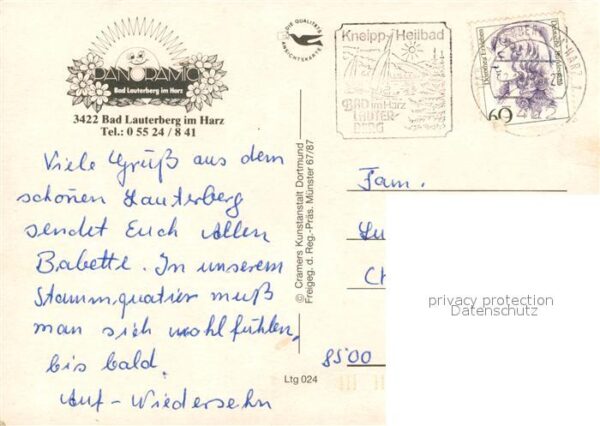 PANORAMIC
Bad Lauterberg im Harz
3422 Bad Lauterberg im Harz
Tel.: 0 55 24 / 8 41
Viele Grüß aus dem
schönen Lauterberg
sendet Euch allen
Babette. In unserem
Stammquatier muß
man sich wohlfühlen,
bis bald.
Auf-Wiedersehn
DIE QUALITÄTS
ANSICHTSKARTE
© Cramers Kunstanstalt Dortmund
Freigeg. d. Reg.-Präs. Münster 67/87
Ltg 024
Kneipp-Heilbad
BAD im Harz
LAUTER-
BERG
60
Fam.
Lu
Ch
8500
privacy protection
Datenschutz